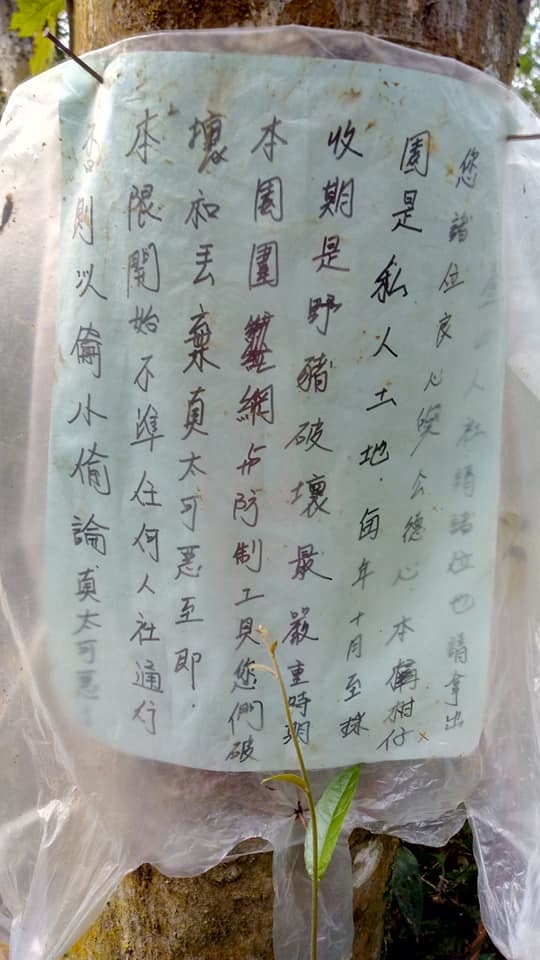 人社請諸位也請拿出
您諸位良心與公德心.本柑仔
園是私人土地.每年十月至採
收期是野豬破壞最嚴重時期
本園圍網与防制工具您們破
壞和丟棄真太可惡至即.
本限開始不準任何人社通行
否則以偷小偷論真太可惡.